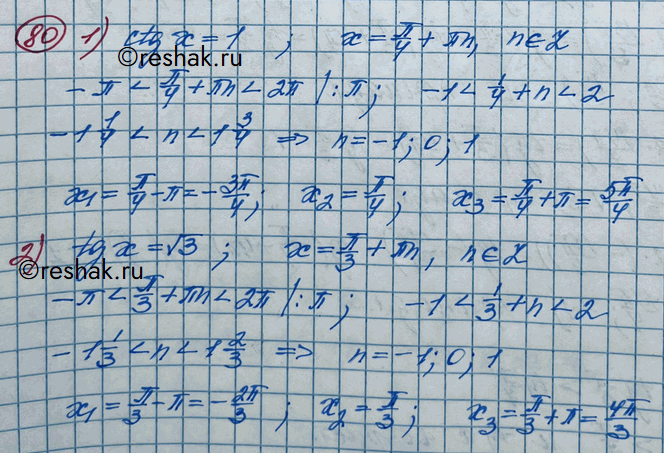 80 1) ctg x = 1 ; x = π/4 + πn, n∈Z
©reshak.ru
-π < π/4 + πn < 2π |:π ; -1 < 1/4 + n < 2
-1 1/4 < n < 1 3/4 ⇒ n = -1; 0; 1
x₁ = π/4 - π = -3π/4; x₂ = π/4; x₃ = π/4 + π = 5π/4
2) tg x = √3 ; x = π/3 + πn, n∈Z
©reshak.ru
-π < π/3 + πn < 2π |:π ; -1 < 1/3 + n < 2
-1 1/3 < n < 1 2/3 ⇒ n = -1; 0; 1
x₁ = π/3 - π = -2π/3 ; x₂ = π/3 ; x₃ = π/3 + π = 4π/3